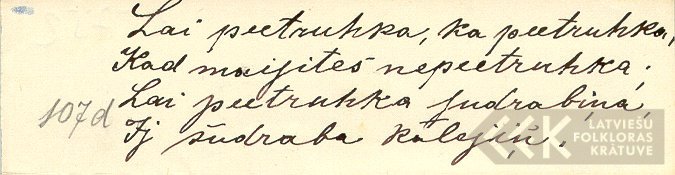 Lai peetruhka, ka peetruhka,
Kad maijites nepeetruhka;
Lai peetruhka sudrabiņa,
107d
Ij sudraba kalejiņ.
LATVIEŠU
FOLKLORAS
KRĀTUVE